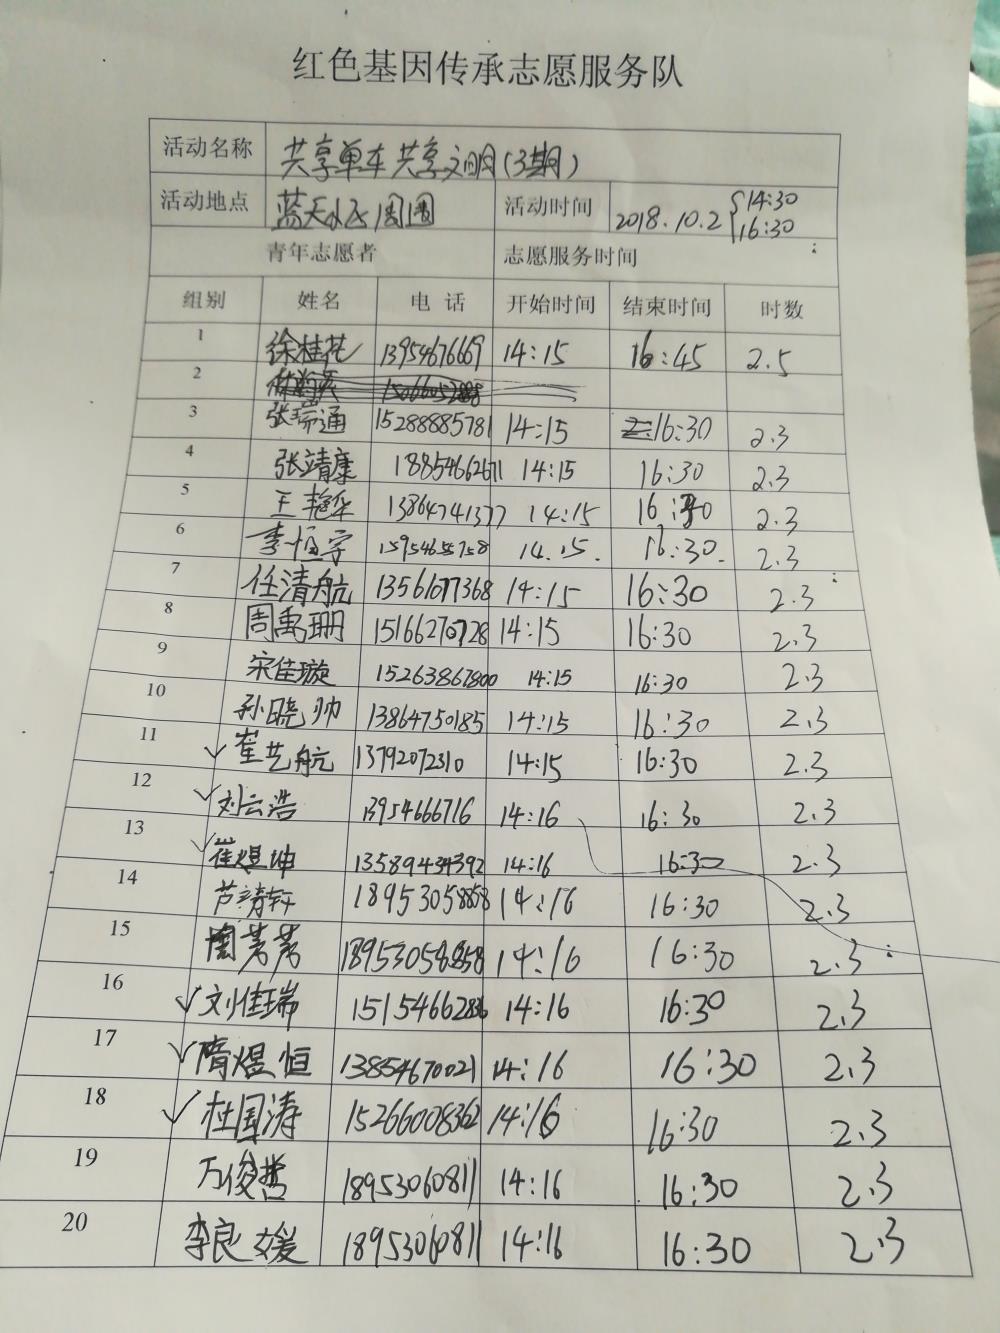 红色基因传承志愿服务队
活动名称 共享单车 共享文明(3期)
活动地点 蓝天 周围 活动时间 2018.10.2 14:30 16:30
青年志愿者 志愿服务时间
组别 姓名 电话 开始时间 结束时间 时数
1 徐桂花 13954676669 14:15 16:45 2.5
2
3 张瑞通 15288885781 14:15 16:30 2.3
4 张靖康 18854662671 14:15 16:30 2.3
5 王艳华 13864741377 14:15 16:30 2.3
6 李恒宇 15954655758 14:15 16:30 2.3
7 任清航 13561077368 14:15 16:30 2.3
8 周禹珊 15166270728 14:15 16:30 2.3
9 宋佳璇 15263867800 14:15 16:30 2.3
10 孙晓帅 13864750185 14:15 16:30 2.3
11 崔艺航 13792072310 14:15 16:30 2.3
12 刘云浩 13954666716 14:16 16:30 2.3
13 崔煜坤 13589434392 14:16 16:30 2.3
14 芦靖轩 18953058858 14:16 16:30 2.3
15 陶芳芳 18953058858 14:16 16:30 2.3
16 刘佳瑞 15154662836 14:16 16:30 2.3
17 隋煜恒 13854670021 14:16 16:30 2.3
18 杜国涛 15266008362 14:16 16:30 2.3
19 万俊哲 18953060811 14:16 16:30 2.3
20 李良媛 18953060811 14:16 16:30 2.3